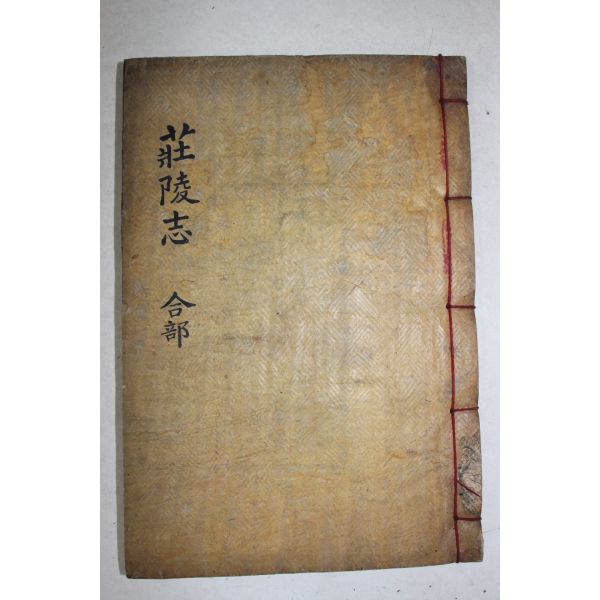 莊陵志
合部